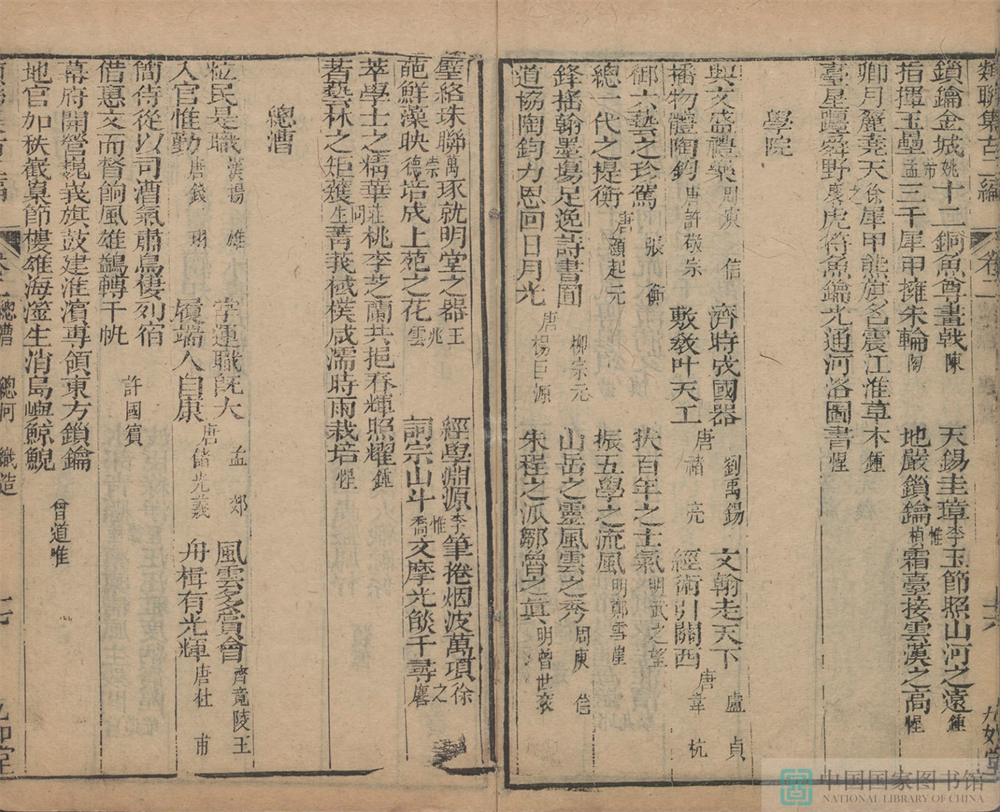 類聯集古二編 卷二 十六 九如堂
鎖鑰金城姚市十二銅魚尊畫戟陳 天錫圭璋李惟玉節照山河之遠鍾惺
指揮玉壘孟三千犀甲擁朱輪陶 地嚴鎖鑰楨霜臺接雲漢之高惺
卿月麗堯天徐之犀甲熊旗名震江淮草木鍾
臺星躔宰野慶虎符魚鑰光通河洛圖書惺
學院
興文盛禮樂周庾信 濟時成國器劉禹錫 文翰走天下盧貞
播物體陶鈞唐許敬宗 敷教叶天工唐褚亮 經術引關西唐韋杭
御六藝之珍駕張衡 扶百年之士氣明武之望
總一代之提衡唐顧起元 振五學之流風明鄭雪崖
鋒搖翰墨場足逸詩書囿柳宗元 山岳之靈風雲之秀周庾信
道協陶鈞力恩回日月光唐楊巨源 朱程之派鄒魯之真明曾世袞
壁絡珠聯萬崇琢就明堂之器王 經學淵源李惟筆捲烟波萬項徐之
葩鮮藻映德培成上苑之花兆雲 詞宗山斗喬文摩光燄千尋慶
萃學士之精華莊問桃李芝蘭共挹春輝照耀鍾
著藝林之矩矱生菁莪棫樸咸濡時雨栽培惺
總漕
粒民是職漢揚雄 字運職旣大孟郊 風雲多賞會齊竟陵王
入官惟勤唐錢珝 履端人自康唐儲光羲 舟楫有光輝唐杜甫
簡侍從以司漕氣肅鳥僂列宿
借惠文而督餉風雄鷁轉千帆 許國賓
幕府開營巍峩旗鼓建淮濱專領東方鎖鑰
地官加秩嶻嶭節樓雄海澨生消島嶼鯨鯢 曾道唯
總漕 總河 織造 十七